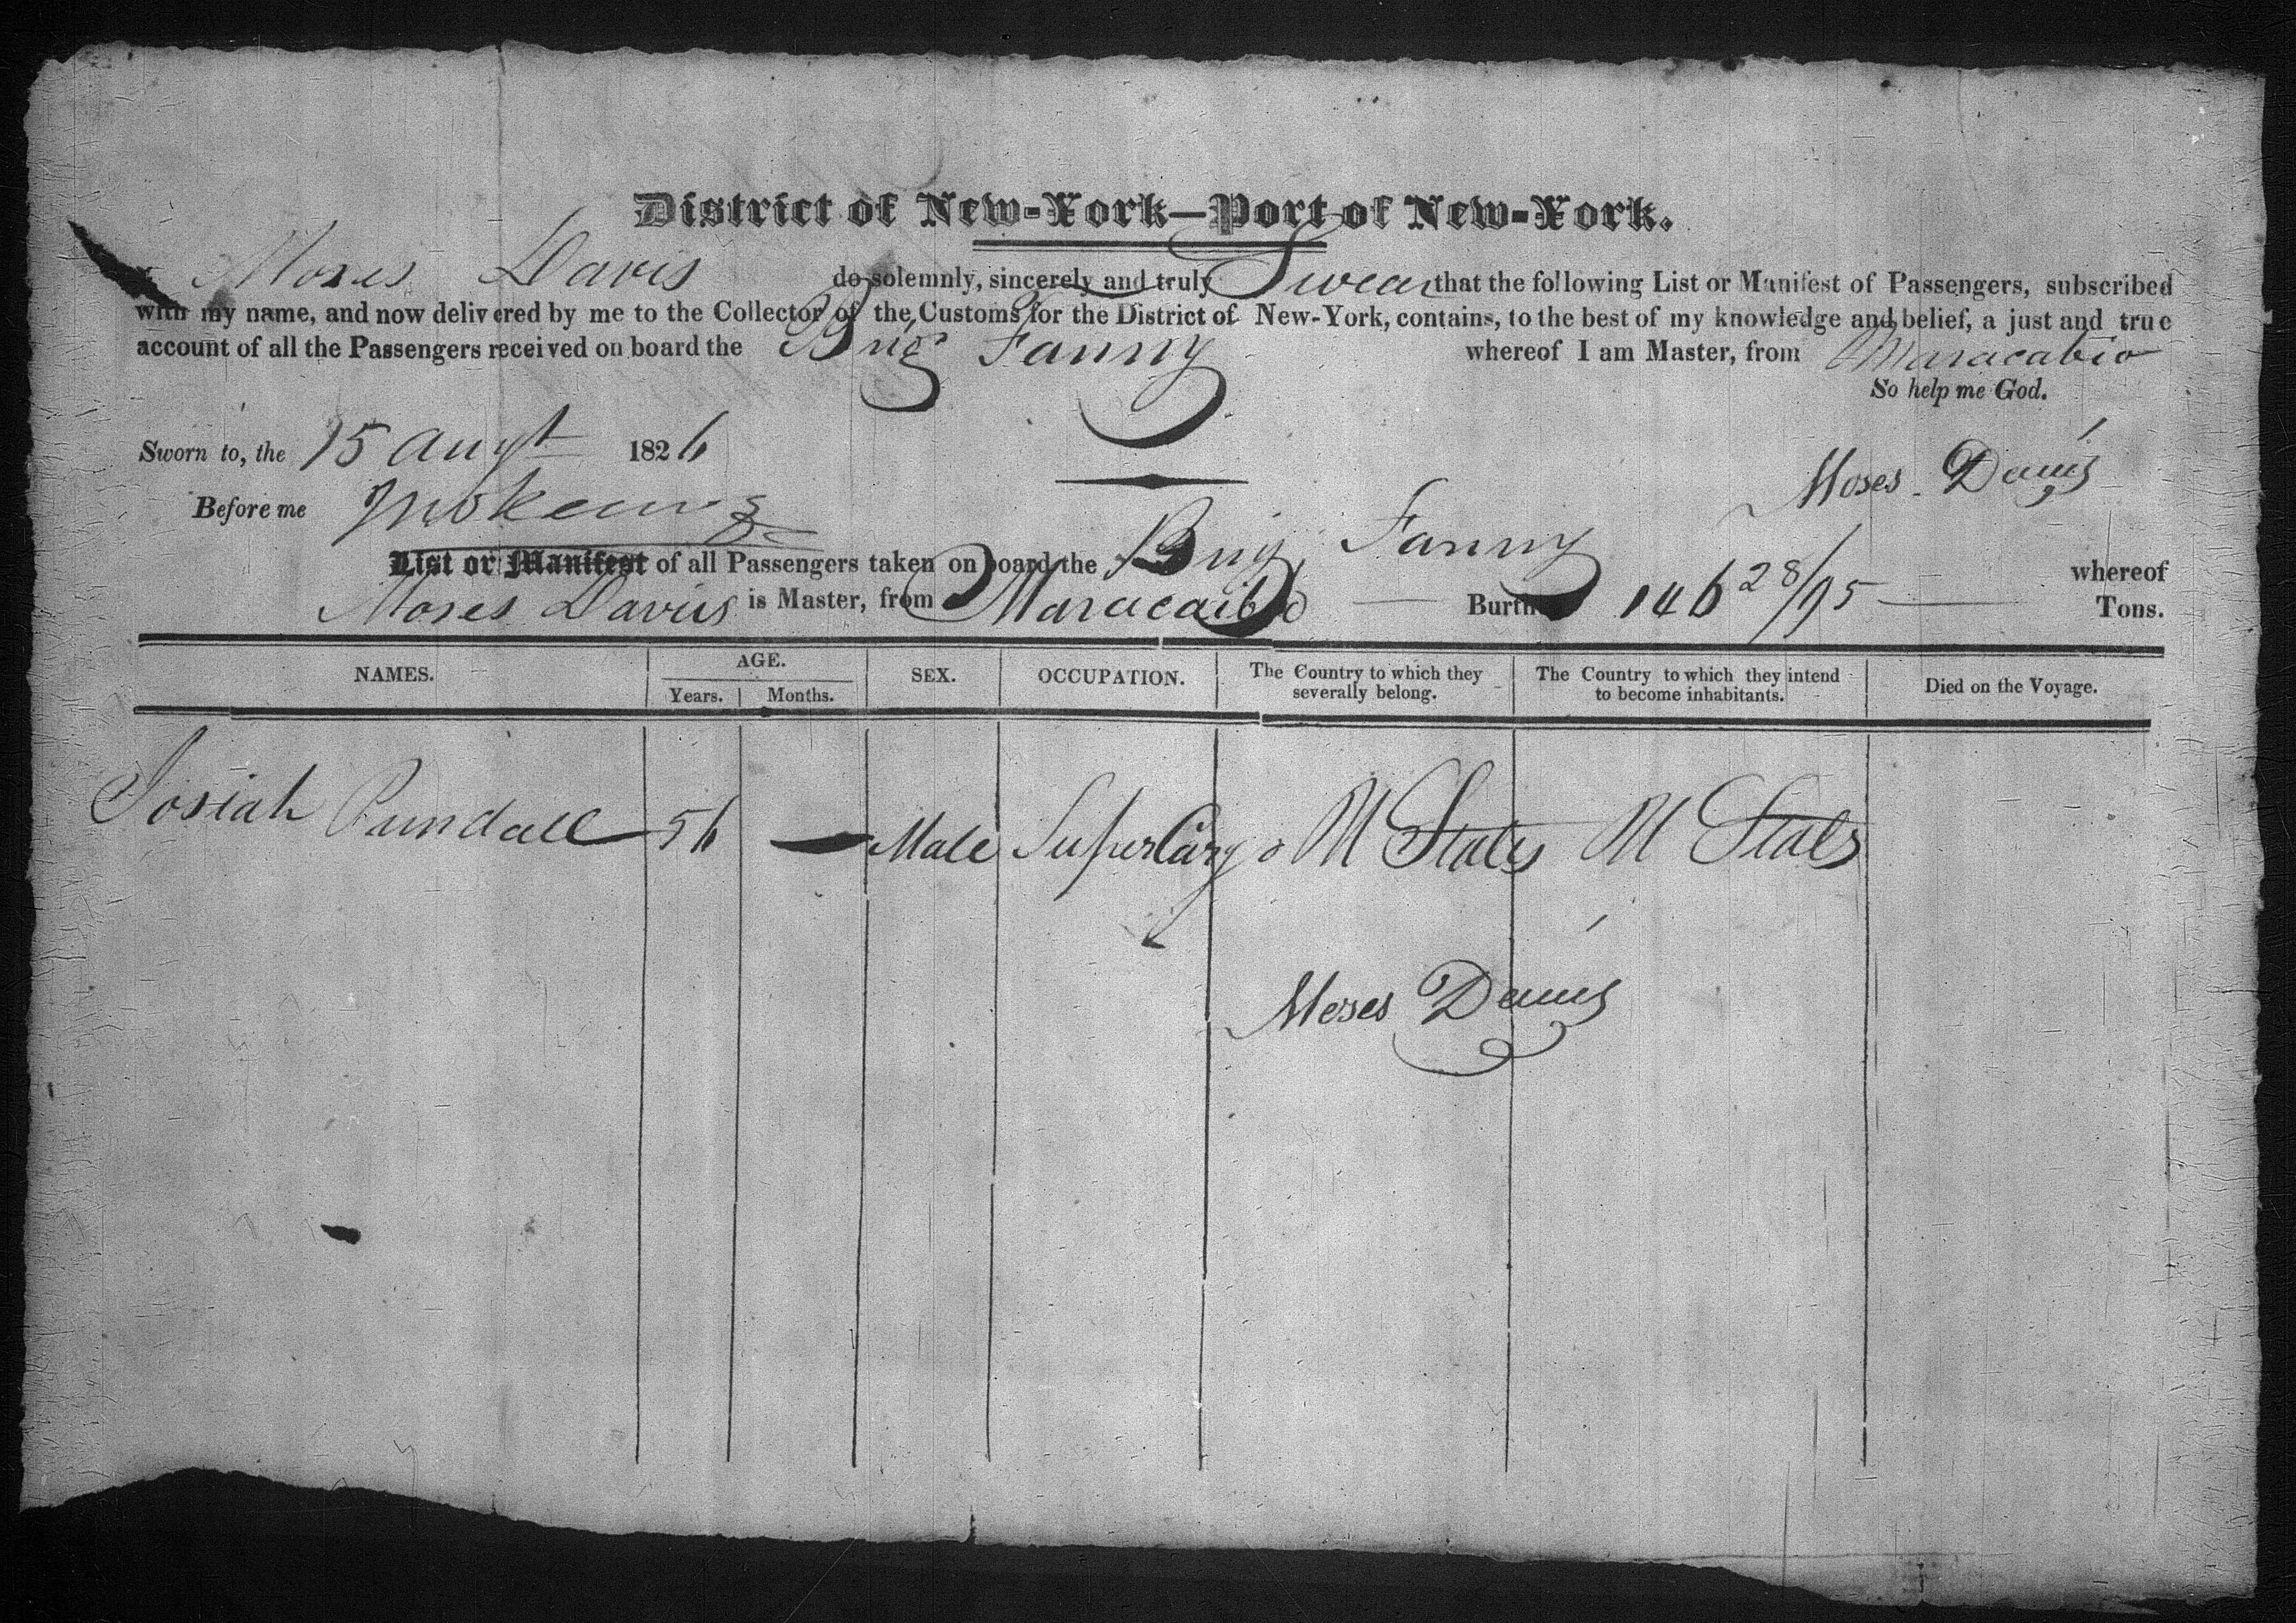 District of New-York—Port of New-York.
Moses Davis do solemnly, sincerely and truly Swear that the following List or Manifest of Passengers, subscribed
with my name, and now delivered by me to the Collector of the Customs for the District of New-York, contains, to the best of my knowledge and belief, a just and true
account of all the Passengers received on board the Brig Fanny whereof I am Master, from Maracabio
So help me God.
Sworn to, the 15 Augt 1826
Moses Davis
Before me
List or Manifest of all Passengers taken on board the Brig Fanny whereof
Moses Davis is Master, from Maracaibo Burthen 146 28/95 Tons.
NAMES. AGE. SEX. OCCUPATION. The Country to which they severally belong. The Country to which they intend to become inhabitants. Died on the Voyage.
Years. Months.
Josiah 56 Male SuperCargo U States U States
Moses Davis